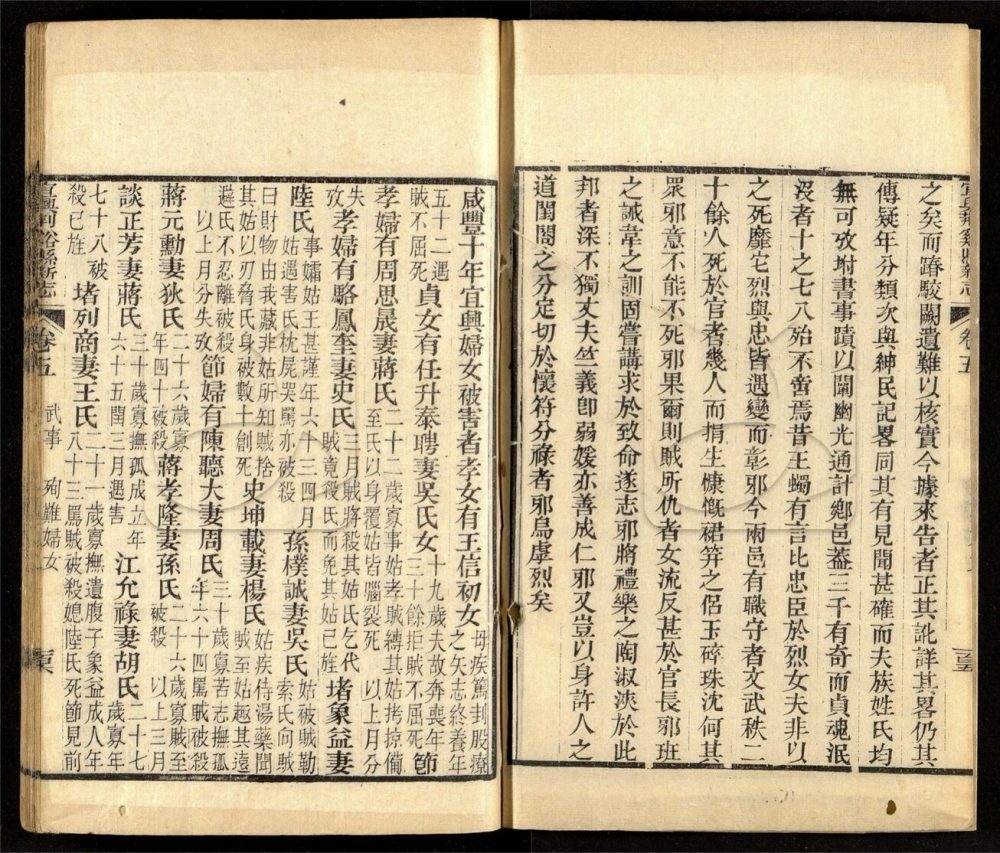 之矣而踳駁闕遺難以核實今據來告者正其訛詳其畧仍其
傳疑年分類次與紳民記畧同其有見聞甚確而夫族姓氏均
無可攷坿書事蹟以闡幽光通計鄉邑葢三千有奇而貞魂泯
沒者十之七八殆不啻焉昔王蠋有言比忠臣於烈女夫非以
之死靡它烈與忠皆遇變而彰邪今兩邑有職守者文武秩二
十餘人死於官者幾人而捐生慷慨裙笄之侶玉碎珠沈何其
眾邪意不能不死邪果爾則賊所仇者女流反甚於官長邪班
之誡韋之訓固嘗講求於致命遂志邪將禮樂之陶淑浹於此
邦者深不獨丈夫竺義卽弱媛亦善成仁邪又豈以身許人之
道閨閤之分定切於懷符分祿者邪烏虖烈矣
卷五
咸豐十年宜興婦女被害者孝女有王信初女 母疾篤刲股療之矢志終養年
五十二遇賊不屈死 貞女有任升泰聘妻吳氏女 十九歲夫故奔喪年三十餘拒賊不屈死 節
孝婦有周思晟妻蔣氏 二十二歲寡事姑孝賊縛其姑拷掠備至氏以身覆姑皆腦裂死 以上月分
失攷 孝婦有駱鳳奎妻史氏 三月賊將殺其姑氏乞代賊竟殺氏而免其姑已旌 堵象益妻
陸氏 事孀姑王甚謹年六十三四月姑遇害氏枕屍哭罵亦被殺 孫樸誠妻吳氏 姑被賊勒索氏向賊
曰財物由我藏非姑所知賊捨其姑以刃脅氏身被數十創死 史坤載妻楊氏 姑疾侍湯藥聞賊至姑趣其遠
避氏不忍離被殺 以上月分失攷 節婦有陳聽大妻周氏 三十歲寡苦志撫孤年六十四罵賊被殺
蔣元勳妻狄氏 二十六歲寡年四十被殺 蔣孝隆妻孫氏 二十六歲寡賊至被殺 以上三月
談正芳妻蔣氏 三十歲寡撫孤成立年六十五閏三月遇害 江允祿妻胡氏 二十七歲寡年
七十八被殺已旌 堵列商妻王氏 二十一歲寡撫遺腹子象益成人年八十三罵賊被殺媳陸氏死節見前
卷五 武事 殉難婦女